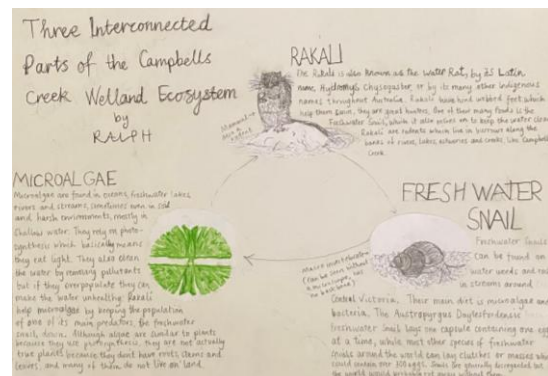 Three Interconnected
Parts of the Campbells
Creek Welland Ecosystem
by
RALPH
RAKALI
The Rakali is also known as the Water Rat, by its Latin
name, Hydromys Chrysogaster, or by its many other indigenous
names throughout Australia. Rakali have hind webbed feet which
help them swim, they are great hunters. One of their many foods is the
Freshwater Snail, which it also relies on to keep the water clean.
Rakali are rodents which live in burrows along the
banks of rivers, lakes, estuaries and creeks, like Campbells
Creek.
Mammal
MICROALGAE
Microalgae are found in oceans, freshwater lakes
rivers and streams, sometimes even in cold
and harsh environments, mostly in
shallow water. They rely on photo-
synthesis which basically means
they eat light. They also clean
the water by removing pollutants
but if they overpopulate they can
make the water unhealthy. Rakali
help microalgae by keeping the population
of one of its main predators, the freshwater
snail, down. Although algae are similar to plants
because they use photosynthesis, they are not actually
true plants because they don't have roots, stems and
leaves, and many of them do not live on land.
FRESH WATER
SNAIL
Macroinvertebrate
(can be seen without
a microscope, has
no back bone)
Freshwater Snails
can be found on
water weeds and
in streams around
Central Victoria. Their main diet is microalgae and
bacteria. The Austropyrgus
freshwater Snail lays one capsule containing one egg
at a time, while most other species of freshwater
snails around the world can lay clutches or masses which
could contain over 300 eggs. Snails are generally disregarded but
the world would be without them